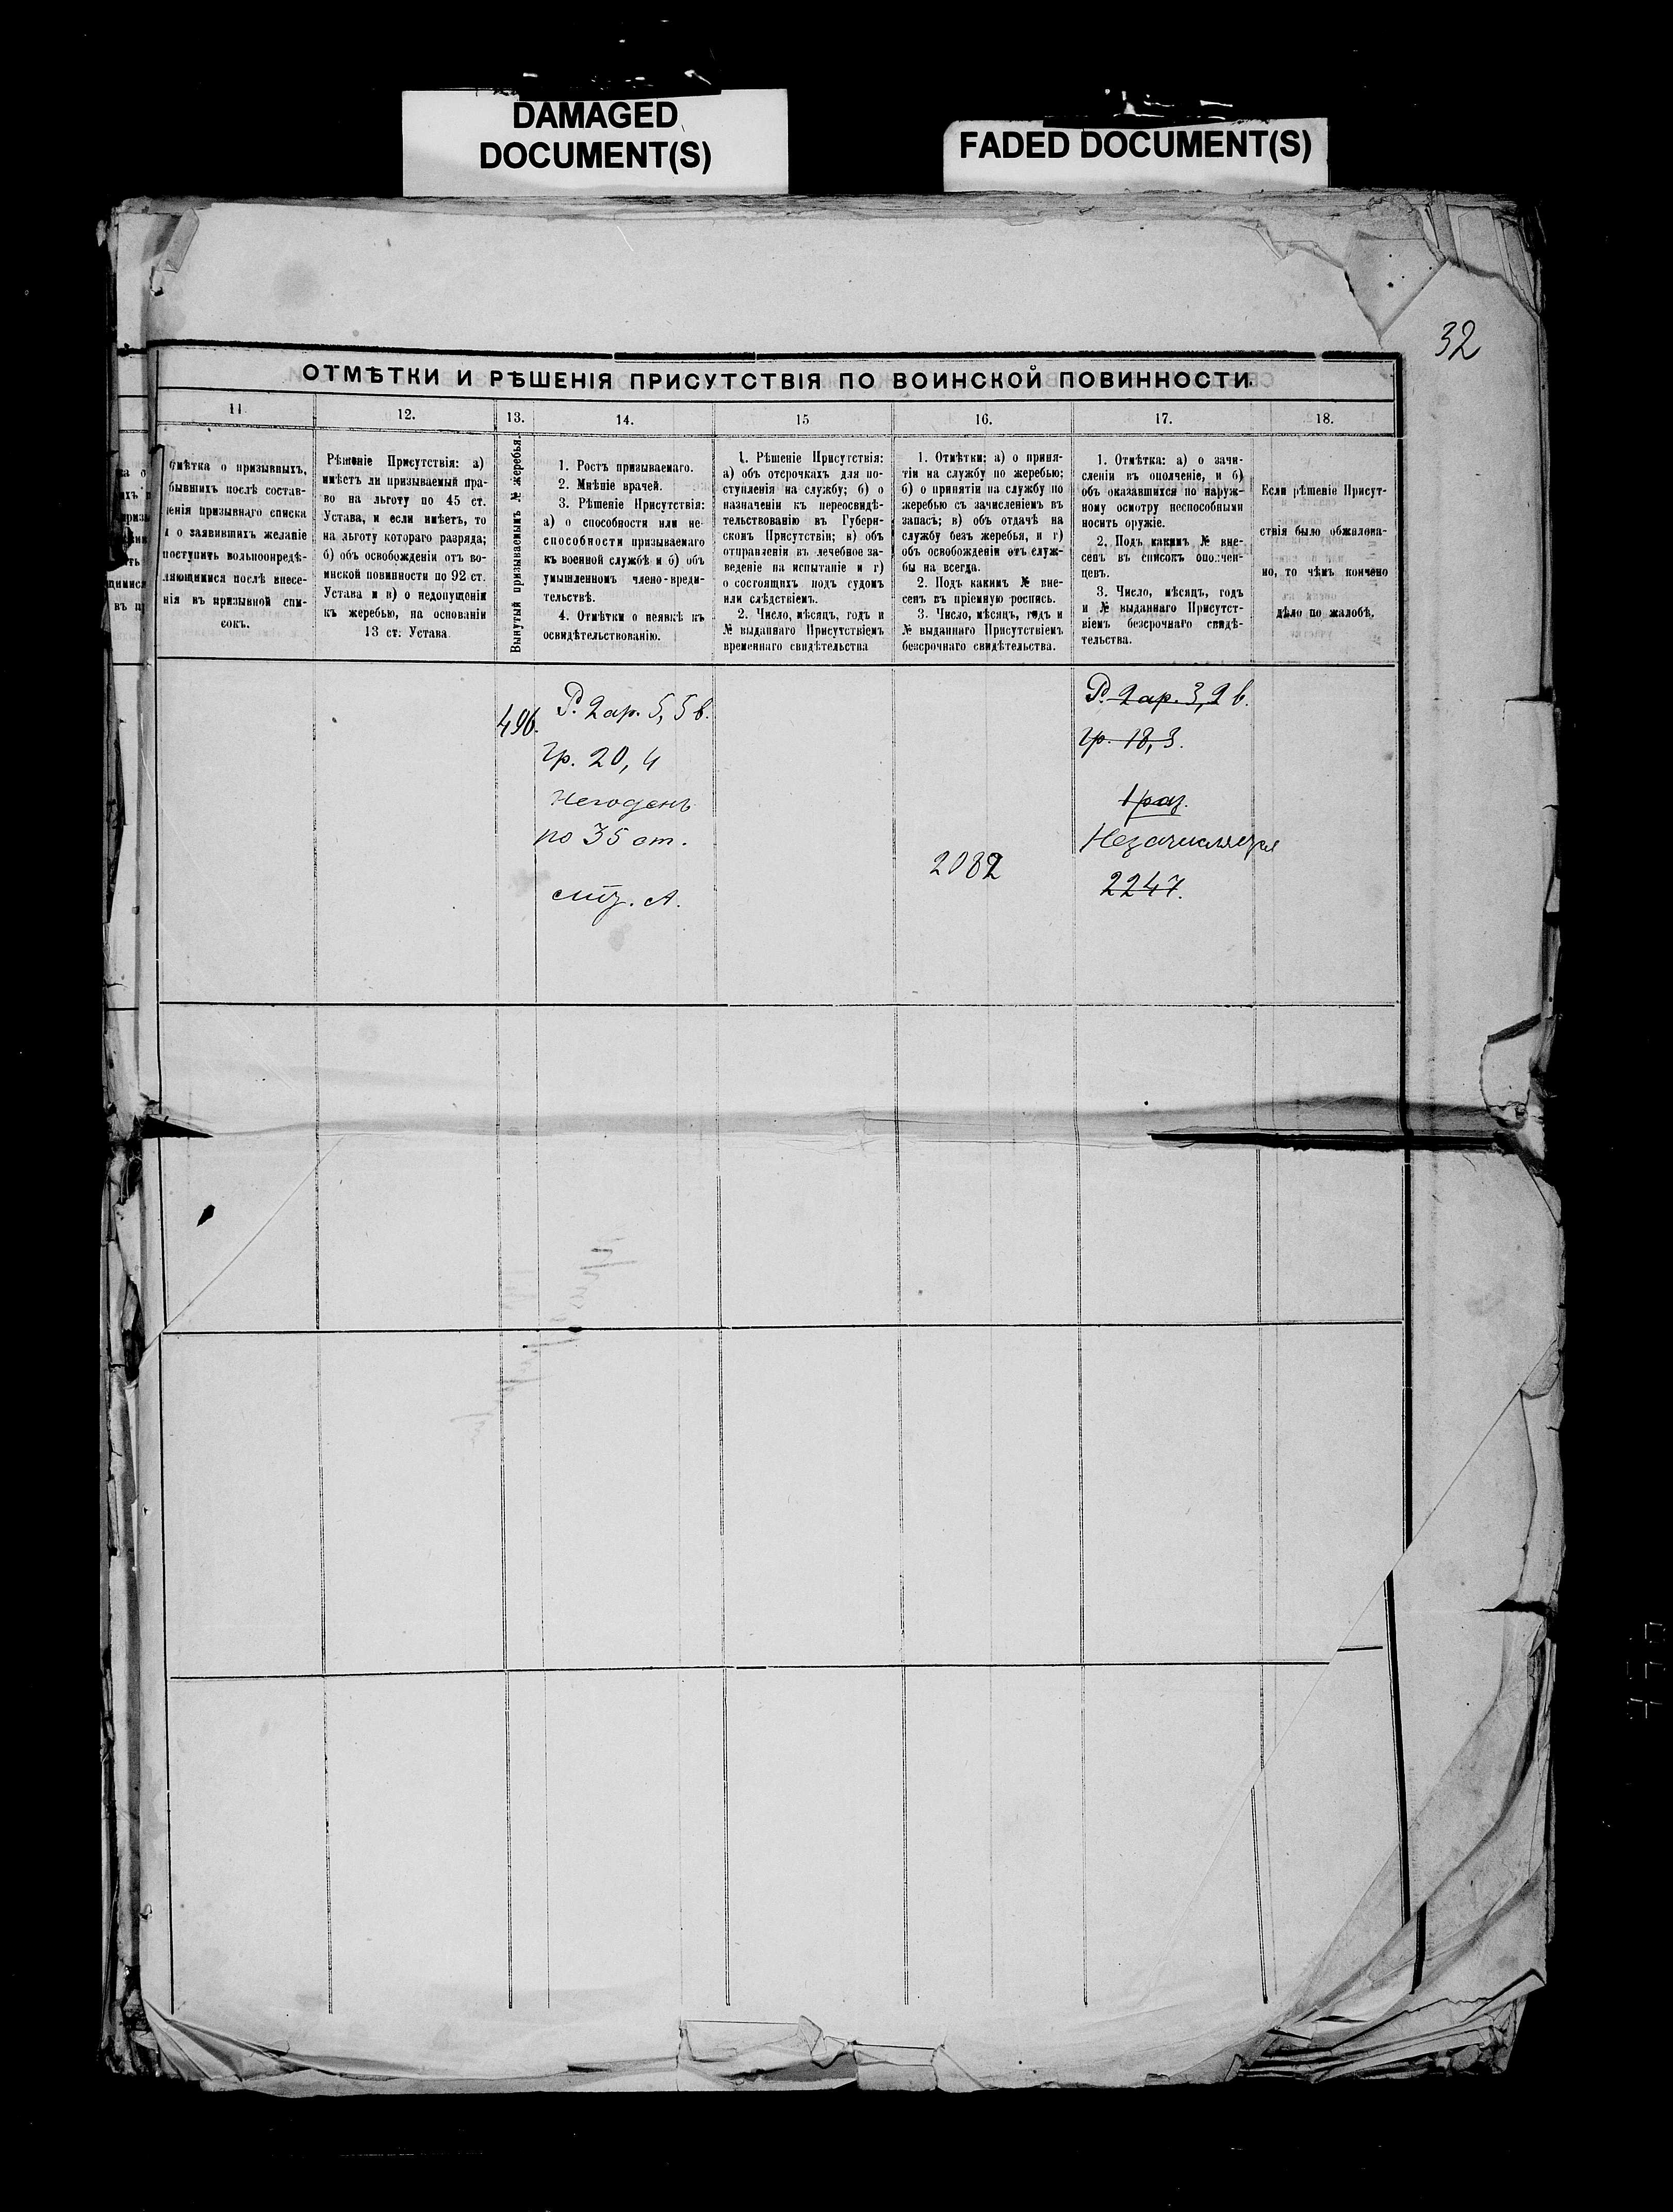 DAMAGED
DOCUMENT(S)
FADED DOCUMENT(S)
32
ОТМѢТКИ И РѢШЕНІЯ ПРИСУТСТВІЯ ПО ВОИНСКОЙ ПОВИННОСТИ.
11
12.
13.
14.
15
16.
17.
18.
мѣтка о призывныхъ,
бывшихъ послѣ состав-
енія призывнаго списка
и о заявившихъ желаніе
поступить вольноопредѣ-
ляющимися послѣ внесе-
нія въ призывной спи-
сокъ.
Рѣшеніе Присутствія: а)
имѣетъ ли призываемый пра-
во на льготу по 45 ст.
Устава, и если имѣетъ, то
на льготу котораго разряда;
б) объ освобожденіи отъ во-
инской повинности по 92 ст.
Устава и в) о недопущеніи
къ жеребью, на основаніи
13 ст. Устава
Вынутый призываемымъ № жеребья.
1. Ростъ призываемаго.
2. Мнѣніе врачей.
3. Рѣшеніе Присутствія:
а) о способности или не-
способности призываемаго
къ военной службѣ и б) объ
умышленномъ члено-вреди-
тельствѣ.
4. Отмѣтки о неявкѣ къ
освидѣтельствованію.
1. Рѣшеніе Присутствія:
а) объ отсрочкахъ для по-
ступленія на службу; б) о
назначеніи къ переосвидѣ-
тельствованію въ Губерн-
скомъ Присутствіи; в) объ
отправленіи въ лечебное за-
веденіе на испытаніе и г)
о состоящихъ подъ судомъ
или слѣдствіемъ.
2. Число, мѣсяцъ, годъ и
№ выданнаго Присутствіемъ
временнаго свидѣтельства
1. Отмѣтки: а) о приня-
тіи на службу по жеребью;
б) о принятіи на службу по
жеребью съ зачисленіемъ въ
запасъ; в) объ отдачѣ на
службу безъ жеребья, и г)
объ освобожденіи отъ служ-
бы на всегда.
2. Подъ какимъ № вне-
сенъ въ пріемную роспись.
3. Число, мѣсяцъ, годъ и
№ выданнаго Присутствіемъ
безсрочнаго свидѣтельства.
1. Отмѣтка: а) о зачи-
сленіи въ ополченіе, и б)
объ оказавшихся по наруж-
ному осмотру неспособными
носить оружіе.
2. Подъ какимъ № вне-
сенъ въ списокъ ополчен-
цевъ.
3. Число, мѣсяцъ, годъ
и № выданнаго Присутст-
віемъ безсрочнаго свидѣ-
тельства.
Если рѣшеніе Присут-
ствія было обжалова-
но, то чѣмъ кончено
дѣло по жалобѣ.
496.
Р. 2 ар. 5,5 в.
Гр. 20,4
Негоденъ
по 35 ст.
лит. А.
2082
Р. 2 ар. 3,2 в.
Гр. 18,3.
1 раз.
Незачисляется
2247.